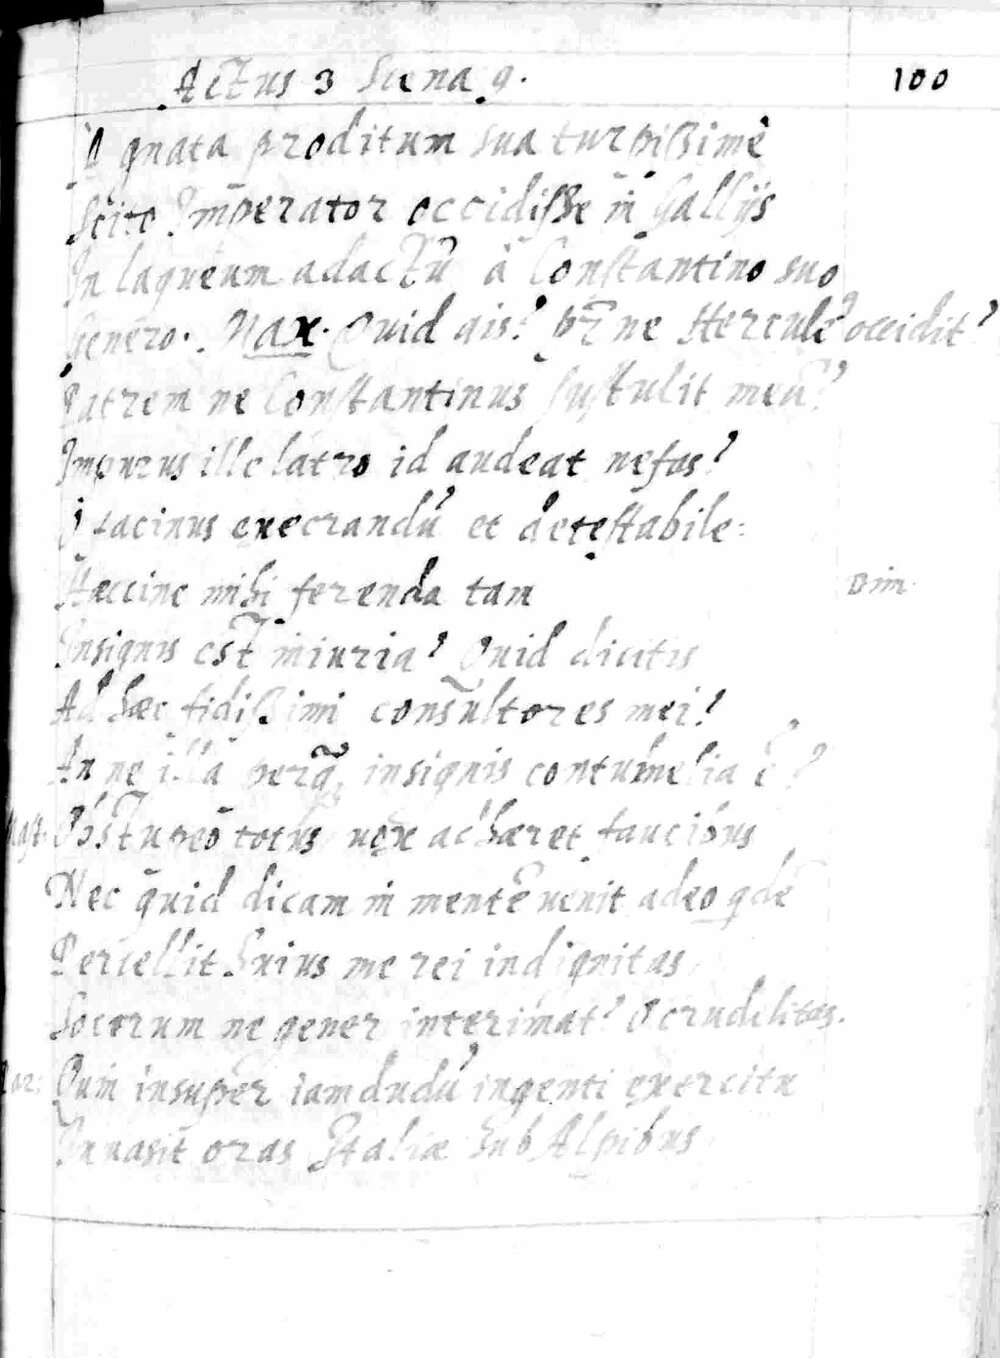 Actus 3 Scena 9.
100
A gnata proditum sua turpißimè
Scito Imperator occidiße in Gallijs
In laqueum adactũ à Constantino suo
Genero. Max. Quid ais? pr̃ ne Hercule occidit?
Patrem ne Constantinus sustulit meũ?
Impurus ille latro id audeat nefas?
O facinus execrandũ et detestabile:
Hæccine mihi ferenda tam
Dim.
Insignis est iniuria? Quid dicitis
Ad hæc fidißimi consultores mei?
An ne illa insignis contumelia ẽ?
Obstupeo totus uox adhæret faucibus
Nec quid dicam in mentẽ uenit adeo qdẽ
Percellit huius me rei indignitas
Socerum ne gener interimat? O crudelitas.
Quin insuper iamdudũ ingenti exercitu
Inuasit oras Italiæ sub Alpibus